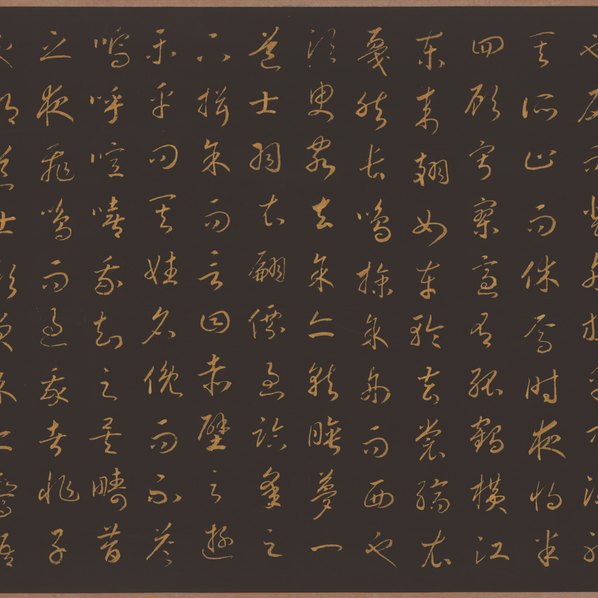 其所止而休焉時夜將半
四顧寂寥適有孤鶴橫江
東來翅如車輪玄裳縞衣
戛然長鳴掠予舟而西也
須臾客去予亦就睡夢一
道士羽衣翩僊過臨皋之
下揖予而言曰赤壁之遊
樂乎問其姓名俛而不答
嗚呼噫嘻我知之矣疇昔
之夜飛鳴而過我者非子